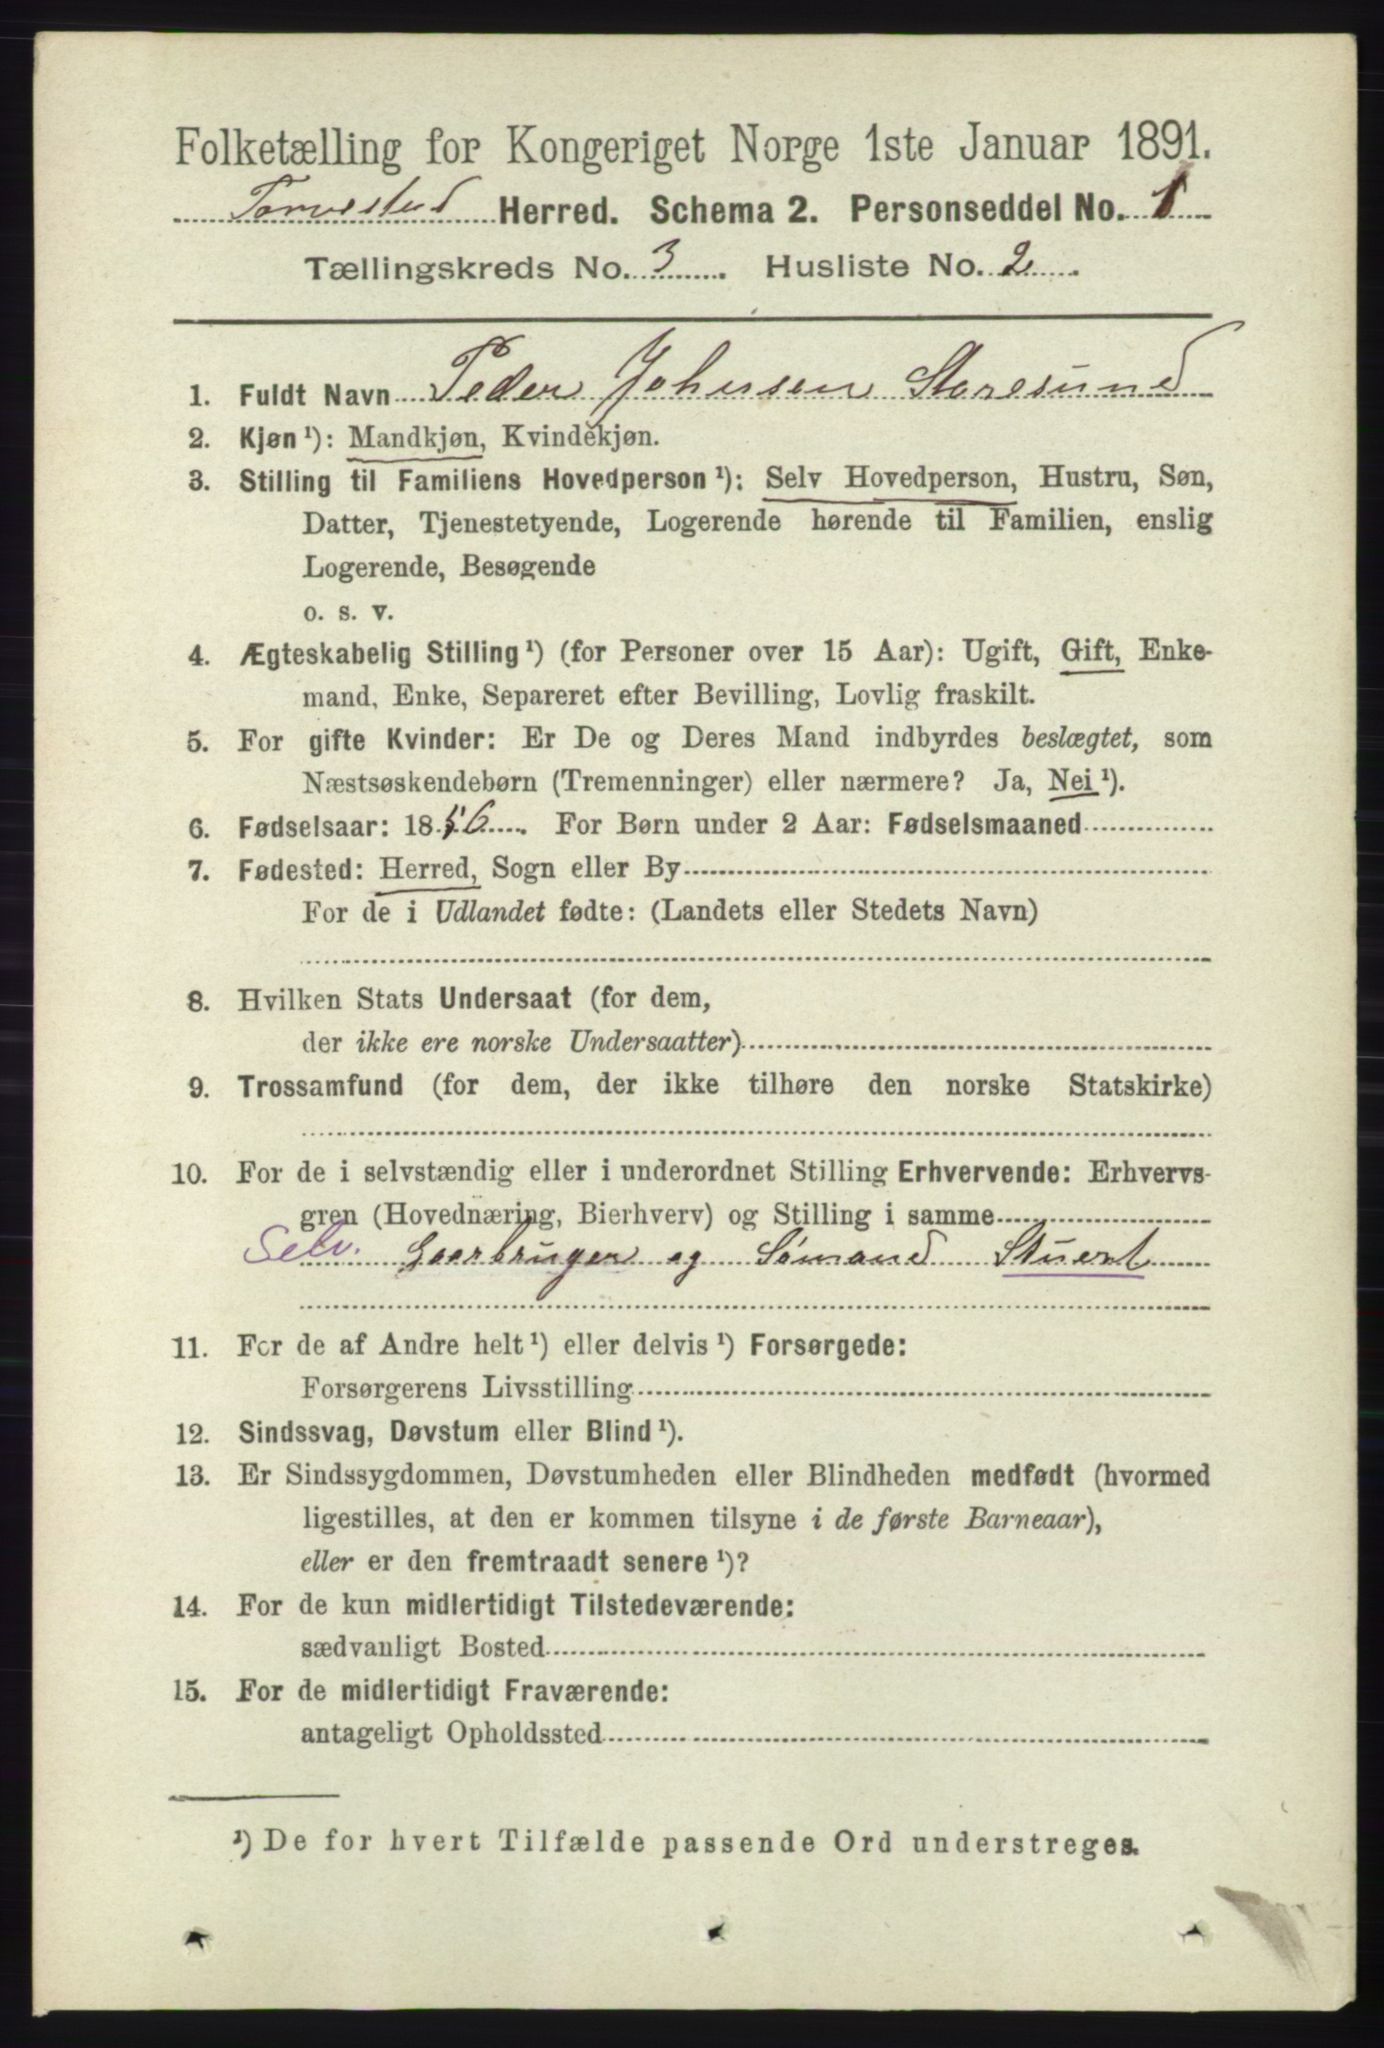 Folketælling for Kongeriget Norge 1ste Januar 1891.
Torvestad Herred. Schema 2. Personseddel No. 1
Tællingskreds No. 3. Husliste No. 2.
1. Fuldt Navn Peder Johnsen Storesund
2. Kjøn ¹): Mandkjøn, Kvindekjøn.
3. Stilling til Familiens Hovedperson ¹): Selv Hovedperson, Hustru, Søn,
Datter, Tjenestetyende, Logerende hørende til Familien, enslig
Logerende, Besøgende
o. s. v.
4. Ægteskabelig Stilling ¹) (for Personer over 15 Aar): Ugift, Gift, Enke-
mand, Enke, Separeret efter Bevilling, Lovlig fraskilt.
5. For gifte Kvinder: Er De og Deres Mand indbyrdes beslægtet, som
Næstsøskendebørn (Tremenninger) eller nærmere? Ja, Nei ¹).
6. Fødselsaar: 1856. For Børn under 2 Aar: Fødselsmaaned
7. Fødested: Herred, Sogn eller By
For de i Udlandet fødte: (Landets eller Stedets Navn)
8. Hvilken Stats Undersaat (for dem,
der ikke ere norske Undersaatter)
9. Trossamfund (for dem, der ikke tilhøre den norske Statskirke)
10. For de i selvstændig eller i underordnet Stilling Erhvervende: Erhvervs-
gren (Hovednæring, Bierhverv) og Stilling i samme
Selv. Gaarbruger og Sømand Stuert
11. For de af Andre helt ¹) eller delvis ¹) Forsørgede:
Forsørgerens Livsstilling
12. Sindssvag, Døvstum eller Blind ¹).
13. Er Sindssygdommen, Døvstumheden eller Blindheden medfødt (hvormed
ligestilles, at den er kommen tilsyne i de første Barneaar),
eller er den fremtraadt senere ¹)?
14. For de kun midlertidigt Tilstedeværende:
sædvanligt Bosted
15. For de midlertidigt Fraværende:
antageligt Opholdssted
¹) De for hvert Tilfælde passende Ord understreges.